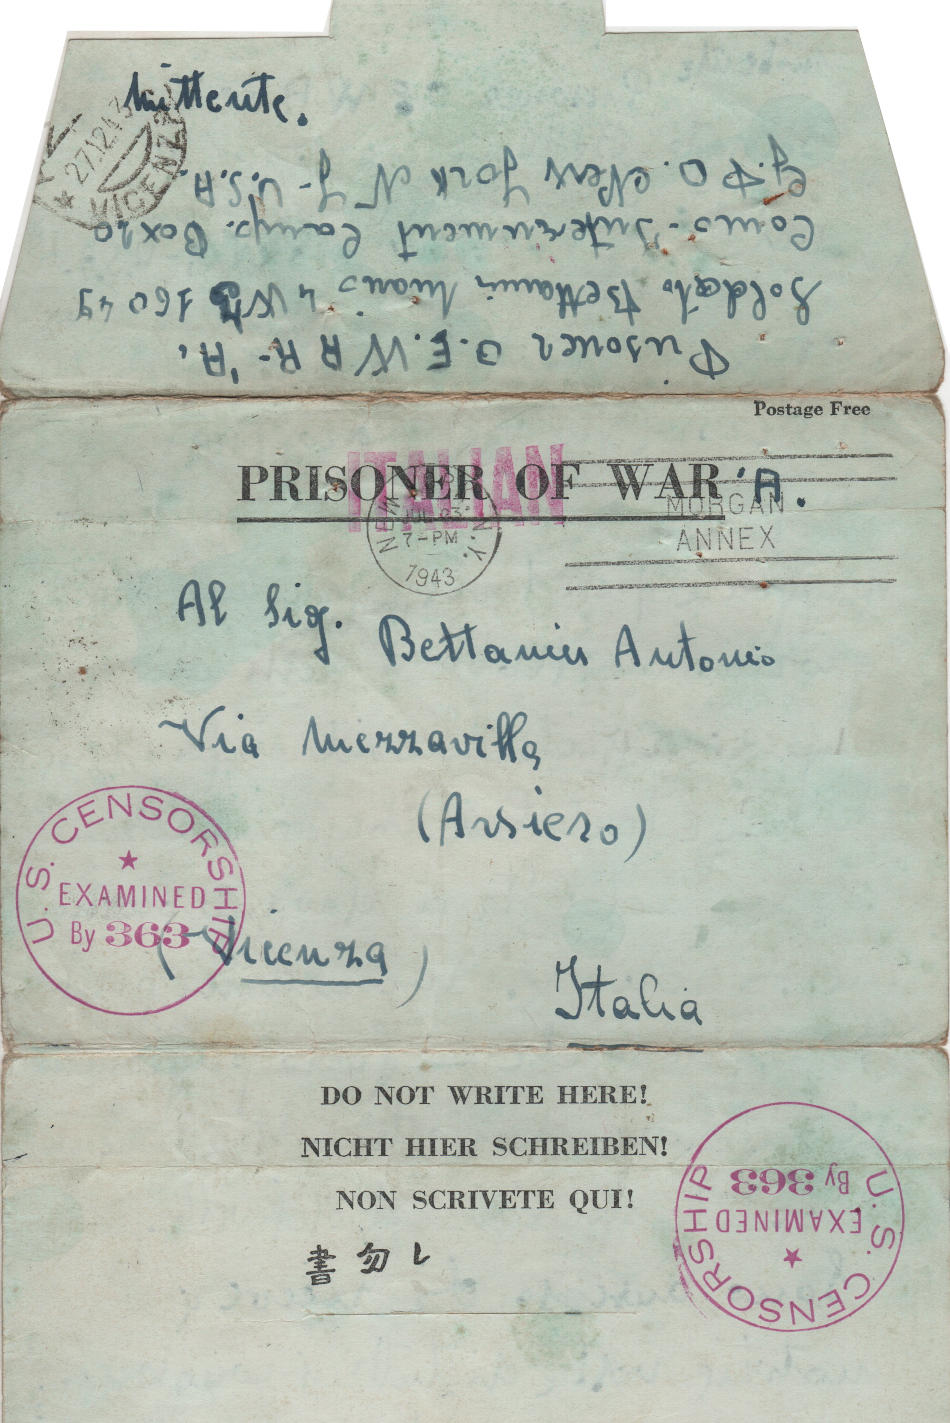 Mittente.
27.12.43
VICENZA
Prisoner O.E. W A R - 'A.
Soldato Bettanin 4 W 16049
Camp. Box 20
G.P.O. New York N Y - U.S.A.
Postage Free
ITALIAN
PRISONER OF WAR 'A.
NEW N.Y.
JUL 23
7-PM
1943
MORGAN
ANNEX
Al Sig. Bettanin Antonio
Via Mezzavilla
(Arsiero)
(Vicenza)
Italia
U.S. CENSORSHIP
EXAMINED
By 363
DO NOT WRITE HERE!
NICHT HIER SCHREIBEN!
NON SCRIVETE QUI!
書勿レ
U.S. CENSORSHIP
EXAMINED
By 363